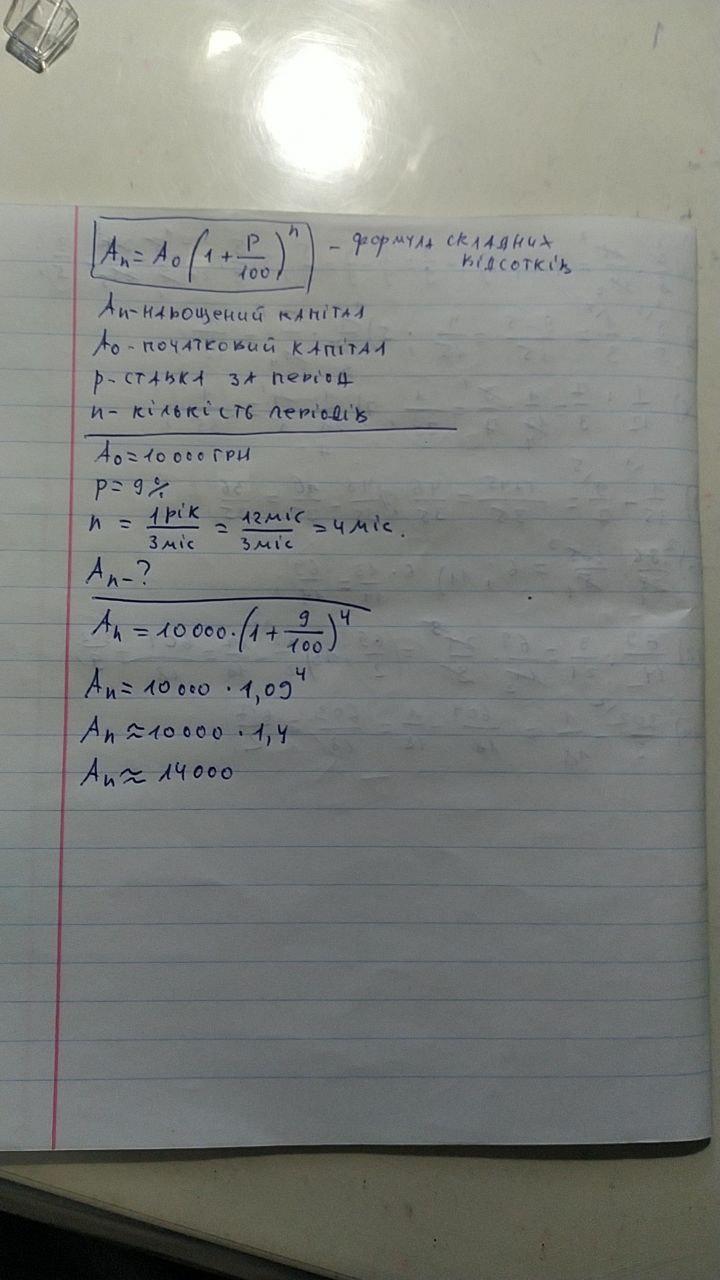 Aₙ = A₀ (1 + P/100)ⁿ – формула складних
відсотків
Aₙ – нарощений капітал
A₀ – початковий капітал
p – ставка за період
n – кількість періодів
A₀ = 10 000 грн
p = 9 %
n = 1 рік/3 міс = 12 міс/3 міс = 4 міс.
Aₙ – ?
Aₙ = 10000 · (1 + 9/100)⁴
Aₙ = 10000 · 1,09⁴
Aₙ ≈ 10000 · 1,4
Aₙ ≈ 14000